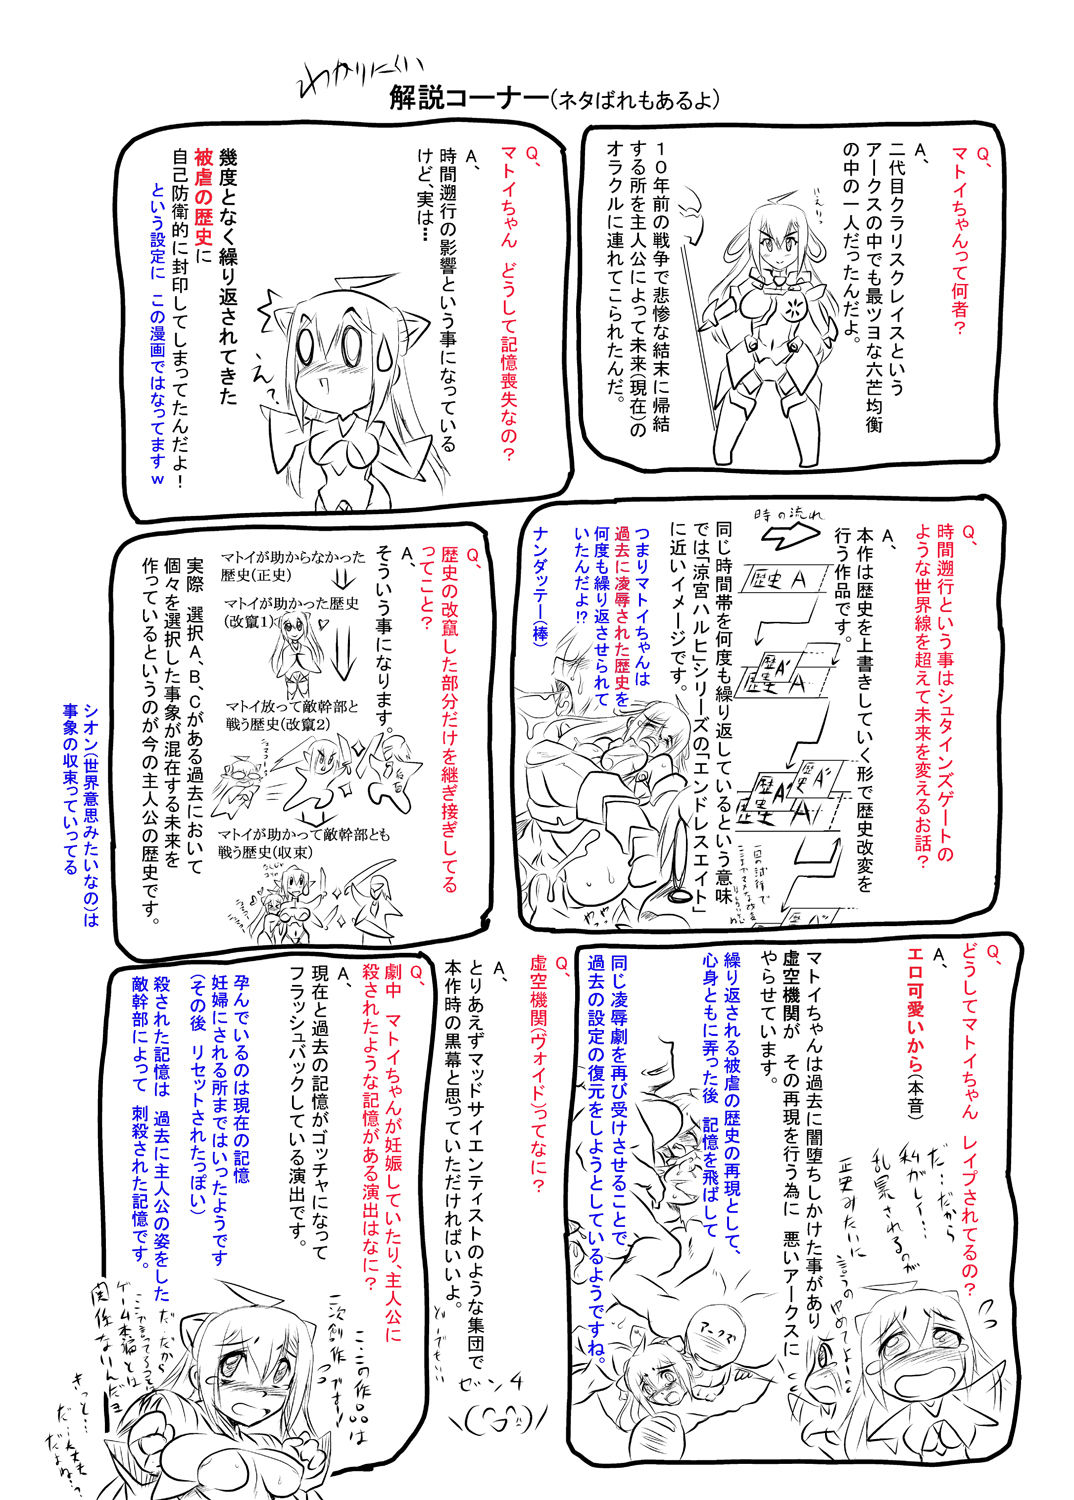 わかりにくい
解説コーナー(ネタばれもあるよ)
Q、
マトイちゃんって何者?
A、
二代目クラリスクレイスという
アークスの中でも最ツヨな六芒均衡
の中の一人だったんだよ。
10年前の戦争で悲惨な結末に帰結
する所を主人公によって未来(現在)の
オラクルに連れてこられたんだ。
Q、
マトイちゃん どうして記憶喪失なの?
A、
時間遡行の影響という事になっている
けど、実は…
幾度となく繰り返されてきた
被虐の歴史に
自己防衛的に封印してしまってたんだよ!
という設定に この漫画ではなってますw
えっ
Q、
時間遡行という事はシュタインズゲートの
ような世界線を超えて未来を変えるお話?
A、
本作は歴史を上書きしていく形で歴史改変を
行う作品です。
時の流れ
歴史A
歴史A'
歴史A
歴史A"
歴史A'
歴史A
同じ時間帯を何度も繰り返しているという意味
では「涼宮ハルヒシリーズの「エンドレスエイト」
に近いイメージです。
つまりマトイちゃんは
過去に凌辱された歴史を
何度も繰り返させられて
いたんだよ!?
ナンダッテー(棒)
Q、
歴史の改竄した部分だけを継ぎ接ぎしてる
ってこと?
A、
そういう事になります。
マトイが助からなかった
歴史(正史)
マトイが助かった歴史
(改竄1)
マトイ放って敵幹部と
戦う歴史(改竄2)
マトイが助かって敵幹部とも
戦う歴史(収束)
実際 選択A、B、Cがある過去において
個々を選択した事象が混在する未来を
作っているというのが今の主人公の歴史です。
シオン(世界意思みたいなの)は
事象の収束っていってる
Q、
どうしてマトイちゃん レイプされてるの?
A、
エロ可愛いから(本音)
マトイちゃんは過去に闇堕ちしかけた事があり
虚空機関が その再現を行う為に 悪いアークスに
やらせています。
繰り返される被虐の歴史の再現として、
心身ともに弄った後 記憶を飛ばして
同じ凌辱劇を再び受けさせることで、
過去の設定の復元をしようとしているようですね。
だ…だから
私がレイ…
乱暴されるのが
正史みたいに
言うのやめてよーっ
アークス
Q、
虚空機関(ヴォイド)ってなに?
A、
とりあえずマッドサイエンティストのような集団で
本作時の黒幕と思っていただければいいよ。
Q、
劇中 マトイちゃんが妊娠していたり、主人公に
殺されたような記憶がある演出はなに?
A、
現在と過去の記憶がゴッチャになって
フラッシュバックしている演出です。
孕んでいるのは現在の記憶
妊婦にされる所まではいったようです
(その後 リセットされたっぽい)
殺された記憶は 過去に主人公の姿をした
敵幹部によって 刺殺された記憶です。
こ、この作品は
二次創作ですー!
だ…だから
ここで言ってることは
ゲーム本編とは
関係ないんだよ
きっと…
だ…大丈夫
だよね…?